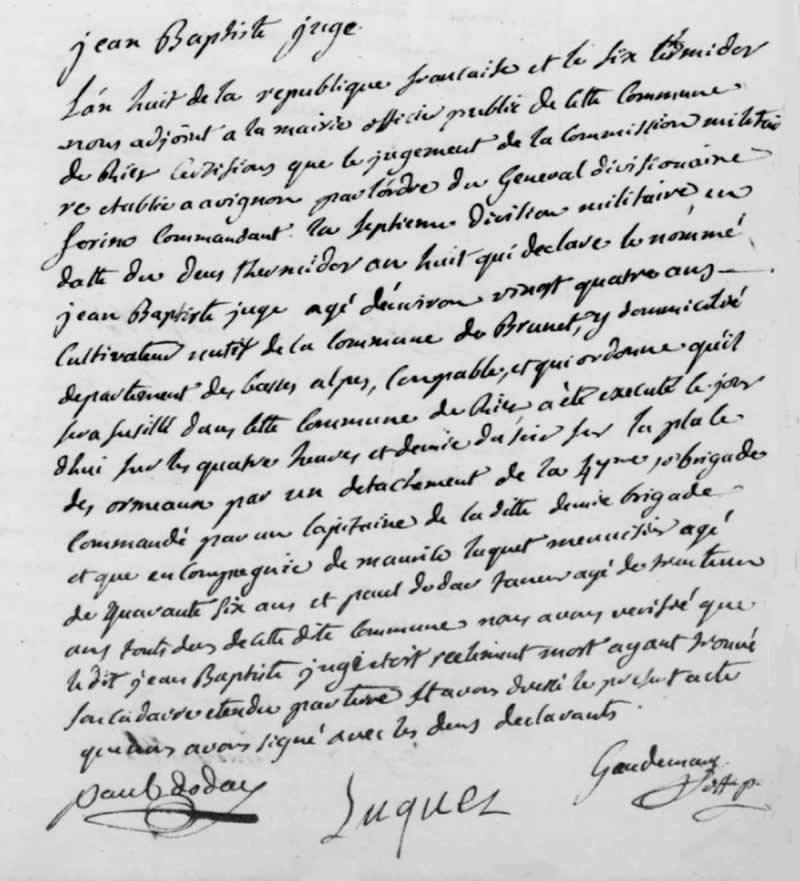 jean Baptiste juge
L'an huit de la republique francaise et le six thermidor
nous adjoint a la mairie officier public de cette Commune
de Riez Certifions que le jugement de la Commission militai
re etablie a avignon par l'ordre du General divisionaire
ferino Commandant la septieme division militaire, en
datte du deus thermidor an huit qui declare le nommé
jean Baptiste juge agé d'environ vingt quatre ans
Cultivateur natif de la Commune de Brunet, y dommicilié
departement des basses alpes, Coupable, et qui ordonne qu'il
sera fusillé dans cette Commune de Riez a été executé le jour
d'hui sur les quatre heures et demie du soir sur la place
des ormeaux par un detachement de la brigade
Commandé par un Capitaine de la ditte demie brigade
et que en Compagnie de maurice luquet menuisier agé
de quarante six ans et paul dodac taneur agé de trente un
ans touts deus de cette dite Commune nous avons verifié que
le dit jean Baptiste juge etoit reelement mort ayant trouvé
son Cadavre etendu par terre et avons dressé le present acte
que nous avons signé avec les deus declarants.
paul dodac Luquet Gaudemar
off. p.